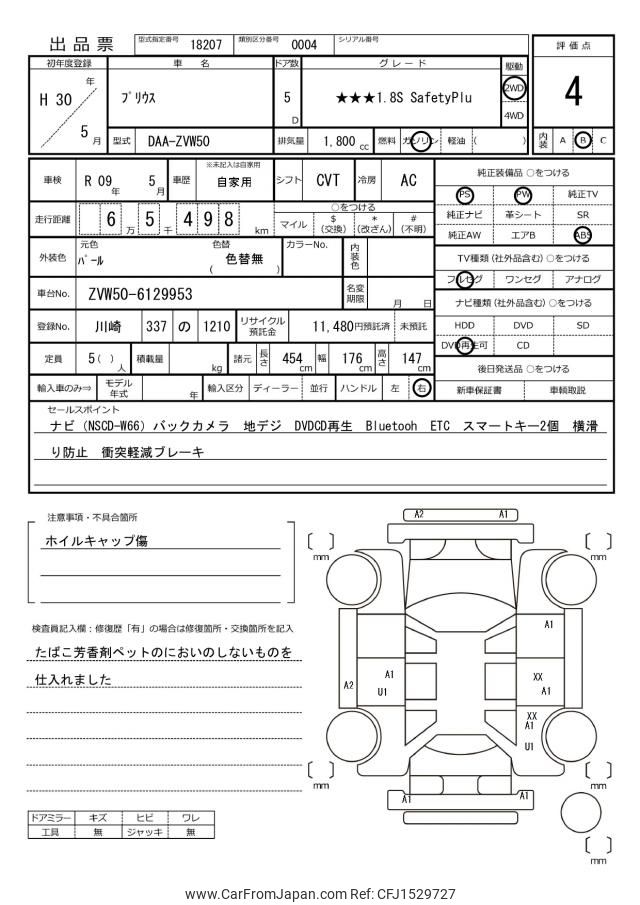 出品票 型式指定番号 18207 類別区分番号 0004 シリアル番号
評価点
4
内装 A B C
初年度登録 車名 ドア数 グレード 駆動
H 30 年 5 月
プリウス
5 D
★★★1.8S SafetyPlu
2WD
4WD
型式 DAA-ZVW50 排気量 1,800 cc 燃料 ガソリン 軽油 ( )
車検 R 09 年 5 月 車歴 ※未記入は自家用 自家用 シフト CVT 冷房 AC
走行距離 6 5 万 千 4 9 8 km
○をつける
マイル $ (交換) * (改ざん) # (不明)
外装色 元色 パール 色替 ( 色替無 ) カラーNo. 内装色
車台No. ZVW50-6129953 名変期限 月 日
登録No. 川崎 337 の 1210 リサイクル預託金 11,480円預託済 未預託
定員 5( ) 人 積載量 kg 諸元 長さ 454 cm 幅 176 cm 高さ 147 cm
輸入車のみ⇒ モデル年式 年 輸入区分 ディーラー 並行 ハンドル 左 右
純正装備品 ○をつける
PS PW 純正TV
純正ナビ 革シート SR
純正AW エアB ABS
TV種類(社外品含む) ○をつける
フルセグ ワンセグ アナログ
ナビ種類(社外品含む) ○をつける
HDD DVD SD
DVD再生可 CD
後日発送品 ○をつける
新車保証書 車輌取説
セールスポイント
ナビ (NSCD-W66) バックカメラ 地デジ DVDCD再生 Bluetooh ETC スマートキー2個 横滑
り防止 衝突軽減ブレーキ
注意事項・不具合箇所
ホイルキャップ傷
検査員記入欄：修復歴「有」の場合は修復箇所・交換箇所を記入
たばこ芳香剤ペットのにおいのしないものを
仕入れました
ドアミラー キズ ヒビ ワレ
工具 無 ジャッキ 無
A2 A1
[ ] mm
[ ] mm
A1
A2 A1 U1
XX A1
XX A1
U1
[ ] mm
[ ] mm
A1 A1
[ ] mm
www.CarFromJapan.com Ref: CFJ1529727